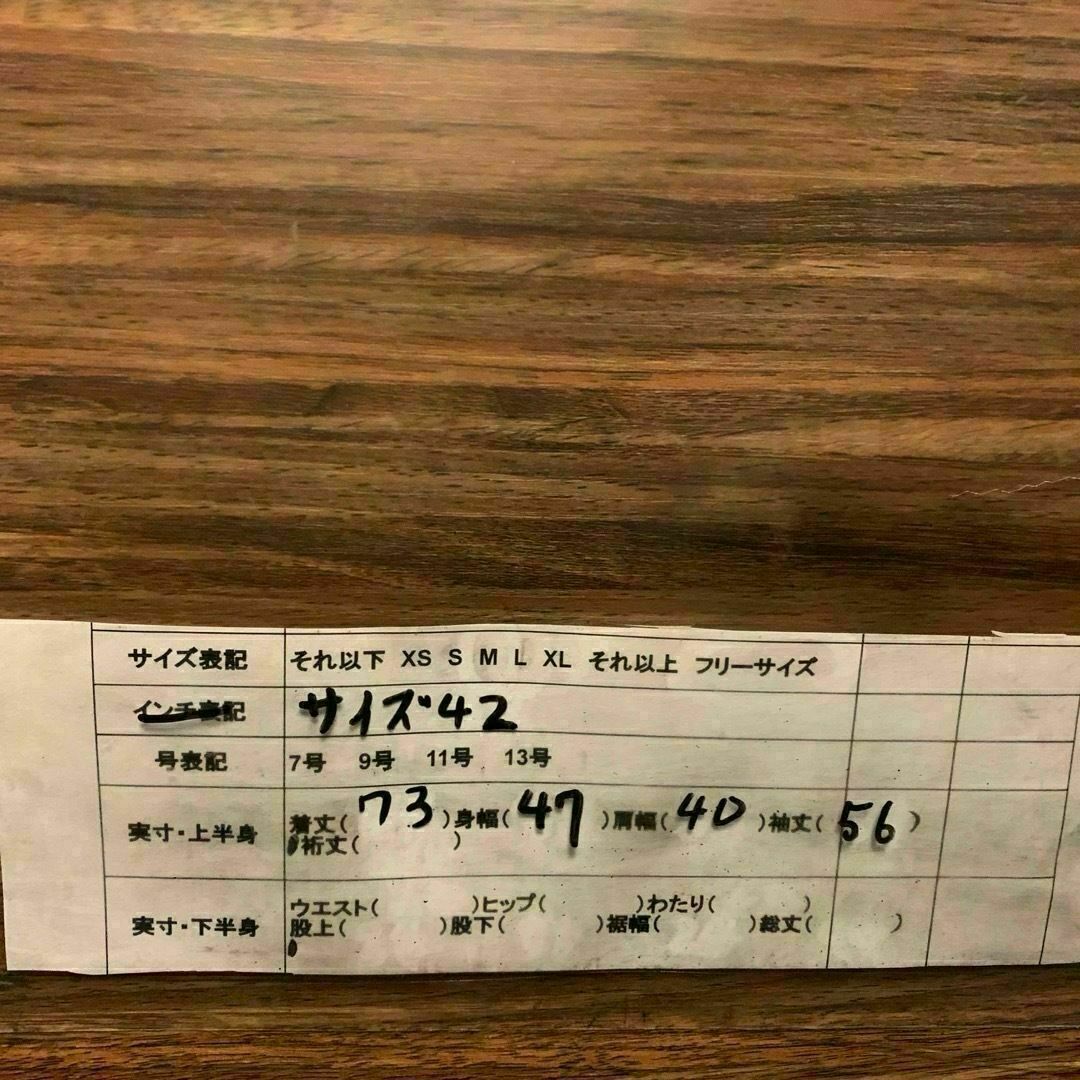 サイズ表記 それ以下 XS S M L XL それ以上 フリーサイズ
インチ表記 サイズ42
号表記 7号 9号 11号 13号
実寸・上半身 着丈( 73 )身幅( 47 )肩幅( 40 )袖丈( 56 )
裄丈( )
実寸・下半身 ウエスト( )ヒップ( )わたり( )
股上( )股下( )裾幅( )総丈( )